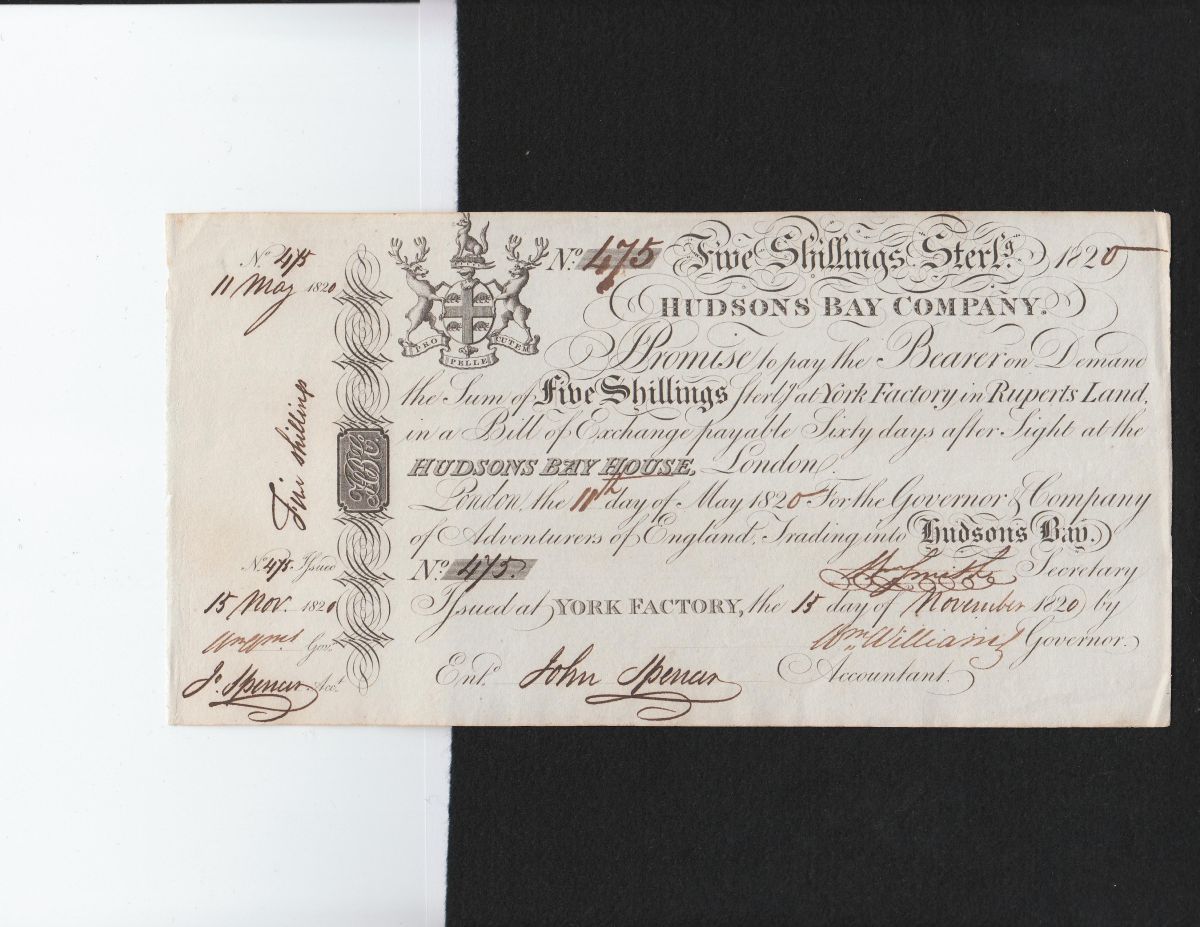 No. 475
11 May 1820
Five Shillings
HBC
No. 475 Issued
15 Nov. 1820
Govr.
Jo. Spencer Acct.
PRO PELLE CUTEM
No. 475 Five Shillings Sterlg. 1820
HUDSONS BAY COMPANY.
I Promise to pay the Bearer on Demand
the Sum of Five Shillings Sterlg. at York Factory in Ruperts Land,
in a Bill of Exchange payable Sixty days after Sight at the
HUDSONS BAY HOUSE, London.
London, the 11th day of May 1820 For the Governor & Company
of Adventurers of England, Trading into Hudsons Bay.
No. 475. Wm Smith Secretary
Issued at YORK FACTORY, the 15 day of November 1820 by
Wm. Williams Governor.
Entd. John Spencer Accountant.